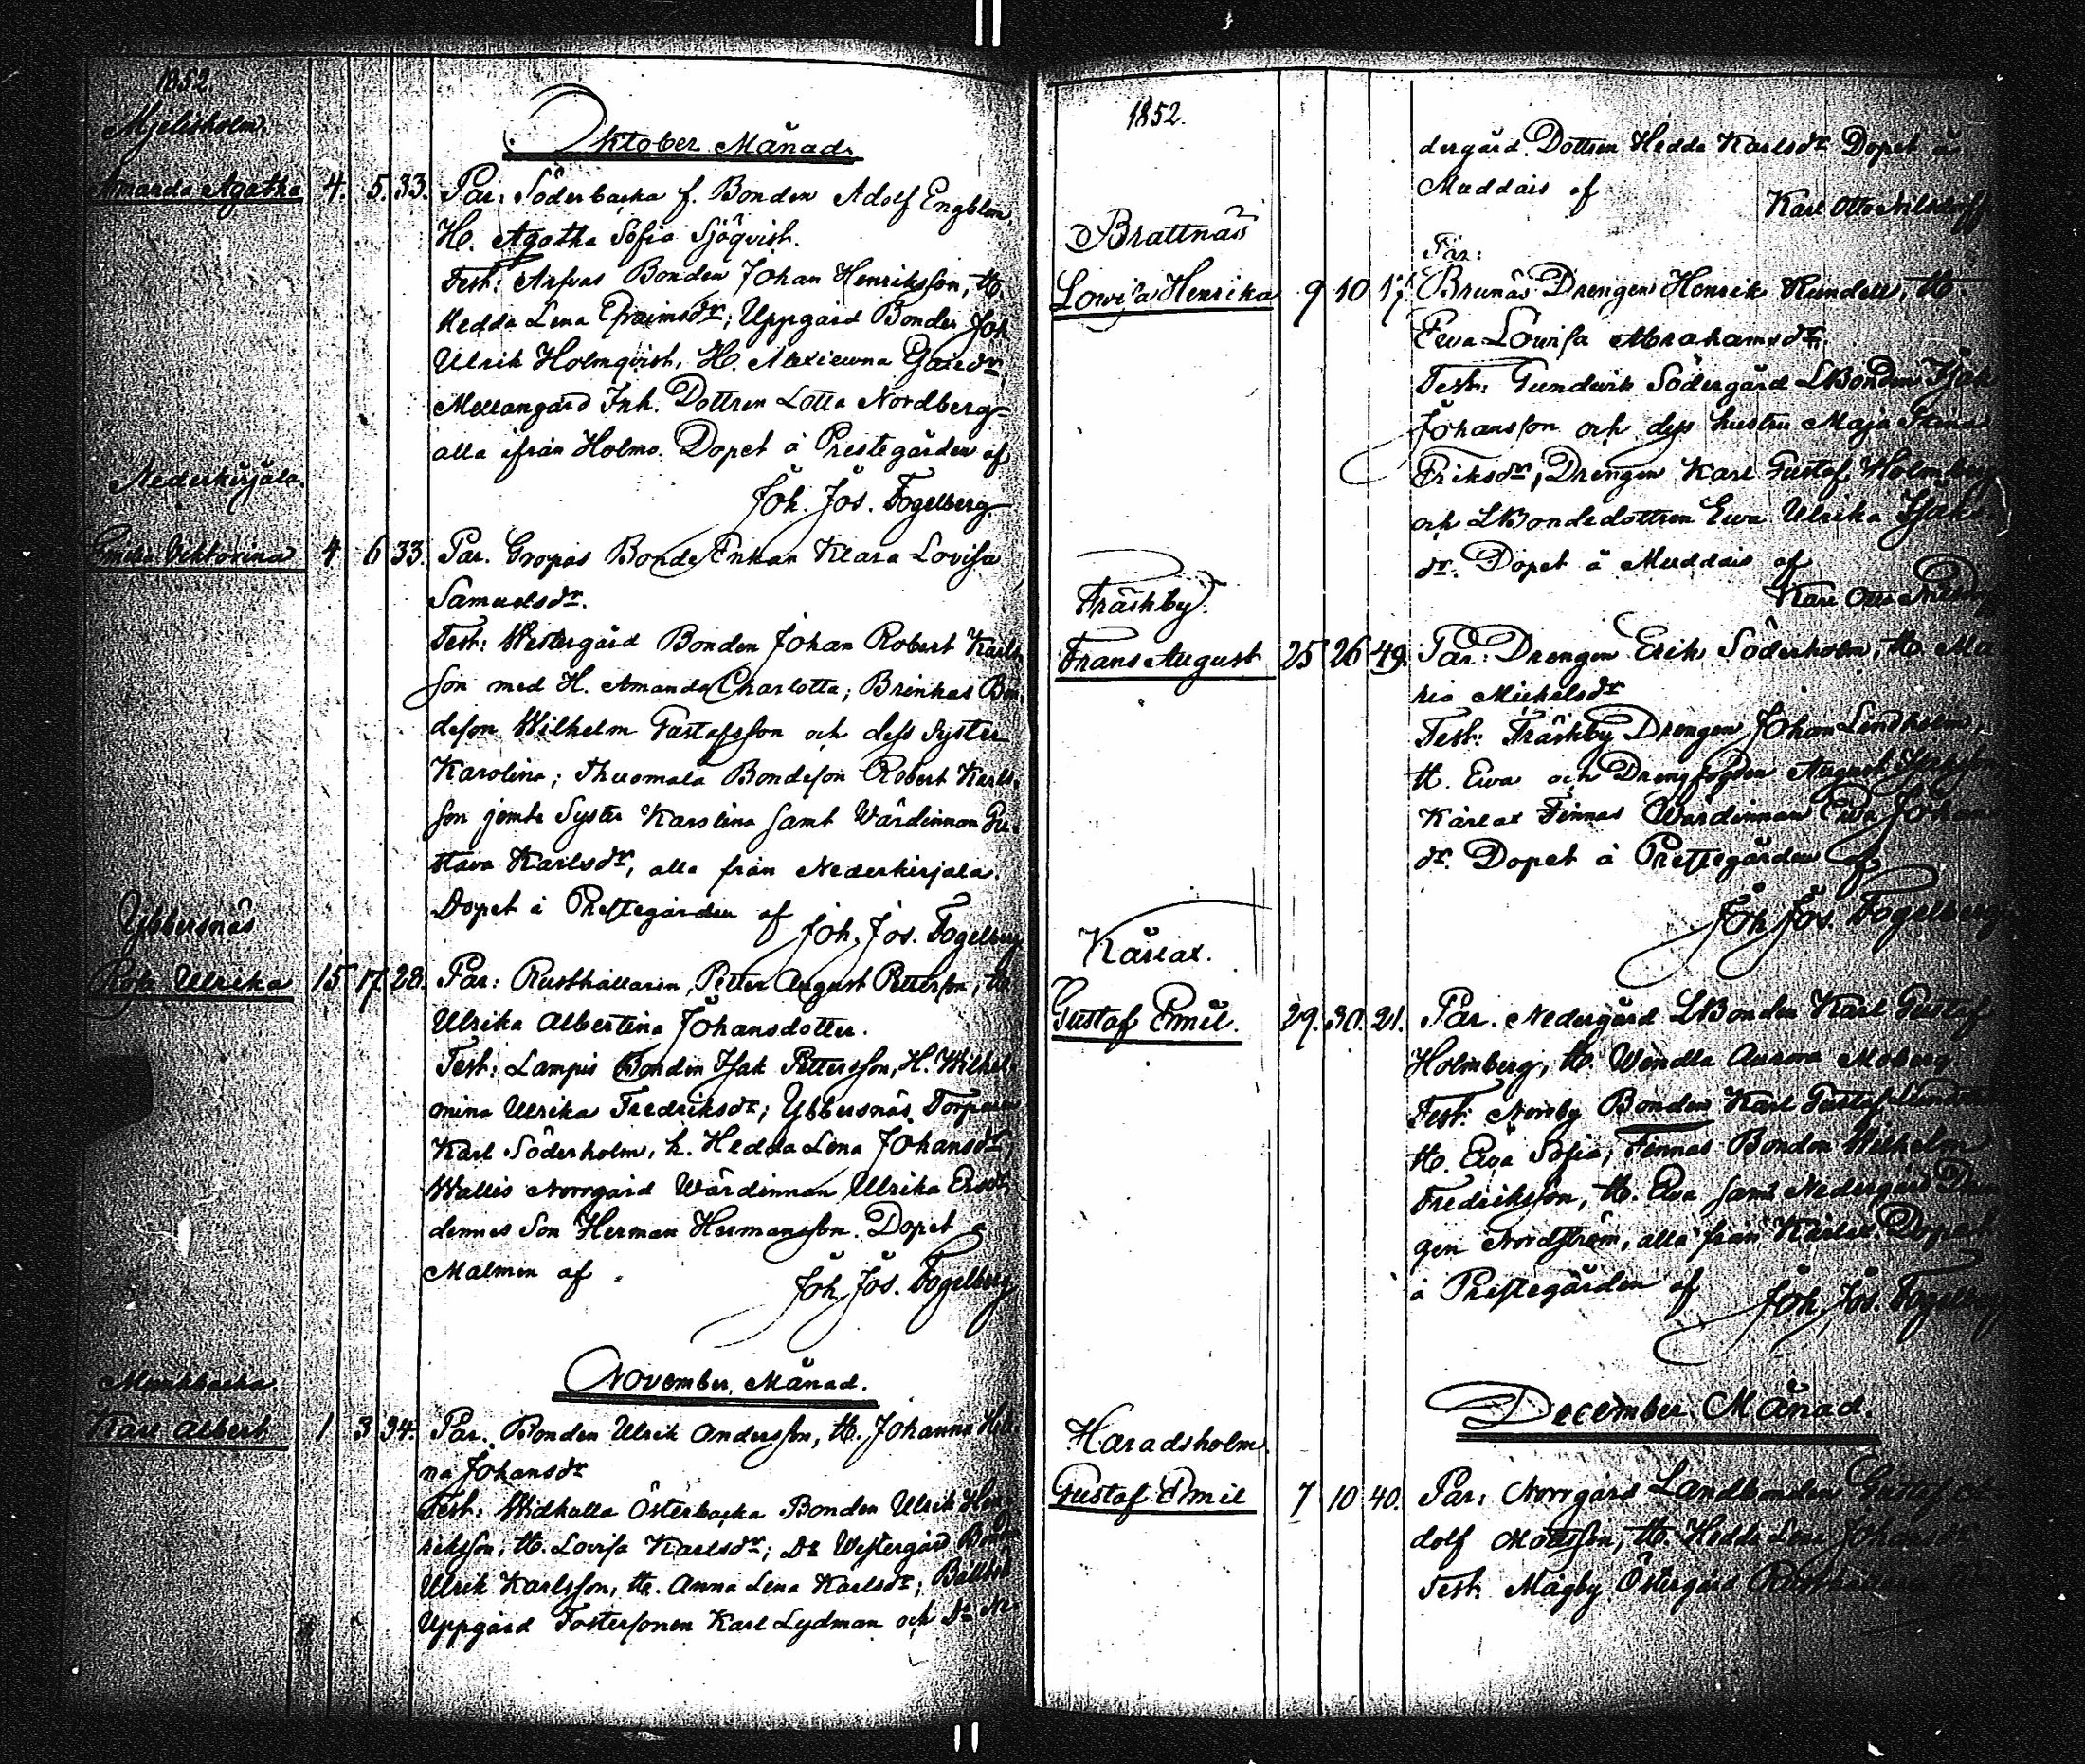 1852.
Mjelisholm.
Oktober Månad.
Amanda Agatha 4. 5. 33. Par: Söderbacka f. Bonden Adolf Engblom
H. Agatha Sofia Sjöqvist.
Test: Arfvas Bonden Johan Henriksson, H.
Hedda Lena Efraimsdr; Uppgård Bonden Joh
Ulrik Holmqvist, H.
Mellangård Inh. Dottren Lotta Nordberg
alla ifrån Holmo. Dopet å Prestegården af
Joh. Jos. Fogelberg.
Nederkirjala.
Viktorina 4 6 33. Par. Gropas Bonde Enkan Klara Lovisa
Samuelsdr.
Test: Westergård Bonden Johan Robert Karls
son med H. Amanda Charlotta; Brinkas Bon
deson Wilhelm Gustafsson och dess Syster
Karolina; Thuomala Bondeson Robert Karls
son jemte Syster Karolina samt Wärdinnan Gu
stava Karlsdr, alla från Nederkirjala.
Dopet å Prestegården af
Joh. Jos. Fogelberg
Ybbersnäs
Rosa Ulrika 15 17. 28. Par: Rusthållaren, Petter August Petterson, H.
Ulrika Albertina Johansdotter.
Test: Lampis Bonden Isak Pettersson, H. Wilhel
mina Ulrika Fredriksdr; Ybbersnäs Torparen
Karl Söderholm, h. Hedda Lena Johansdr,
Wallis Norrgård Wärdinnan Ulrika Ersdr
dennes Son Herman Hermansson. Dopet å
Malmen af
Joh. Jos. Fogelberg
November Månad.
Munkbacka.
Karl Albert 1 3 34. Par. Bonden Ulrik Andersson, H. Johanna Hele
na Johansdr
Test: Widkulla Österbacka Bonden Ulrik Hen
riksson, H. Lovisa Karlsdr; Do Westergård Bond
Ulrik Karlsson, H. Anna Lena Karlsdr;
Uppgård Fostersonen Karl Lydman och Do Ne
1852.
dergård Dottren Hedda Karlsdr. Dopet å
Muddais af
Karl Otto
Brattnäs
Par:
Lowisa Henrika 9 10 17. Brunäs Drengen Henrik Rundell, H.
Eva Lowisa Abrahamsdr.
Test: Gundvik Södergård LBonden Isak
Johansson och dess hustru Maja Stina
Eriksdr; Drengen Karl Gustaf Holmberg
och LBondedottren Eva Ulrika Isaks
dr. Dopet å Muddais af
Karl Otto
Träskby.
Frans August 25 26 49. Par: Drengen Erik Söderholm, H. Ma
ria Mickelsdr
Test: Träskby Drengen Johan Lindholm,
H. Eva och Drengfogden August
Kärlax Finnas Wärdinnan Eva Johans
dr. Dopet å Prestegården af
Joh. Jos. Fogelberg
Kärlax.
Gustaf Emil. 29. 30. 21. Par. Nedergård LBonden Karl Gustaf
Holmberg, H. Wendla Aurora Moberg
Test: Norrby Bonden Karl Gustaf
H. Eva Sofia; Finnas Bonden Wilhelm
Fredriksson, H. Eva samt Nedergård Dren
gen Nordström, alla från Kärlax. Dopet
å Prestegården af
Joh. Jos. Fogelberg
December Månad.
Haradsholm.
Gustaf Emil 7 10 40. Par: Norrgård Landbonden Gustaf A
dolf Mattsson, H. Hedda Lena Johansdr
Test: Mågby Östergård